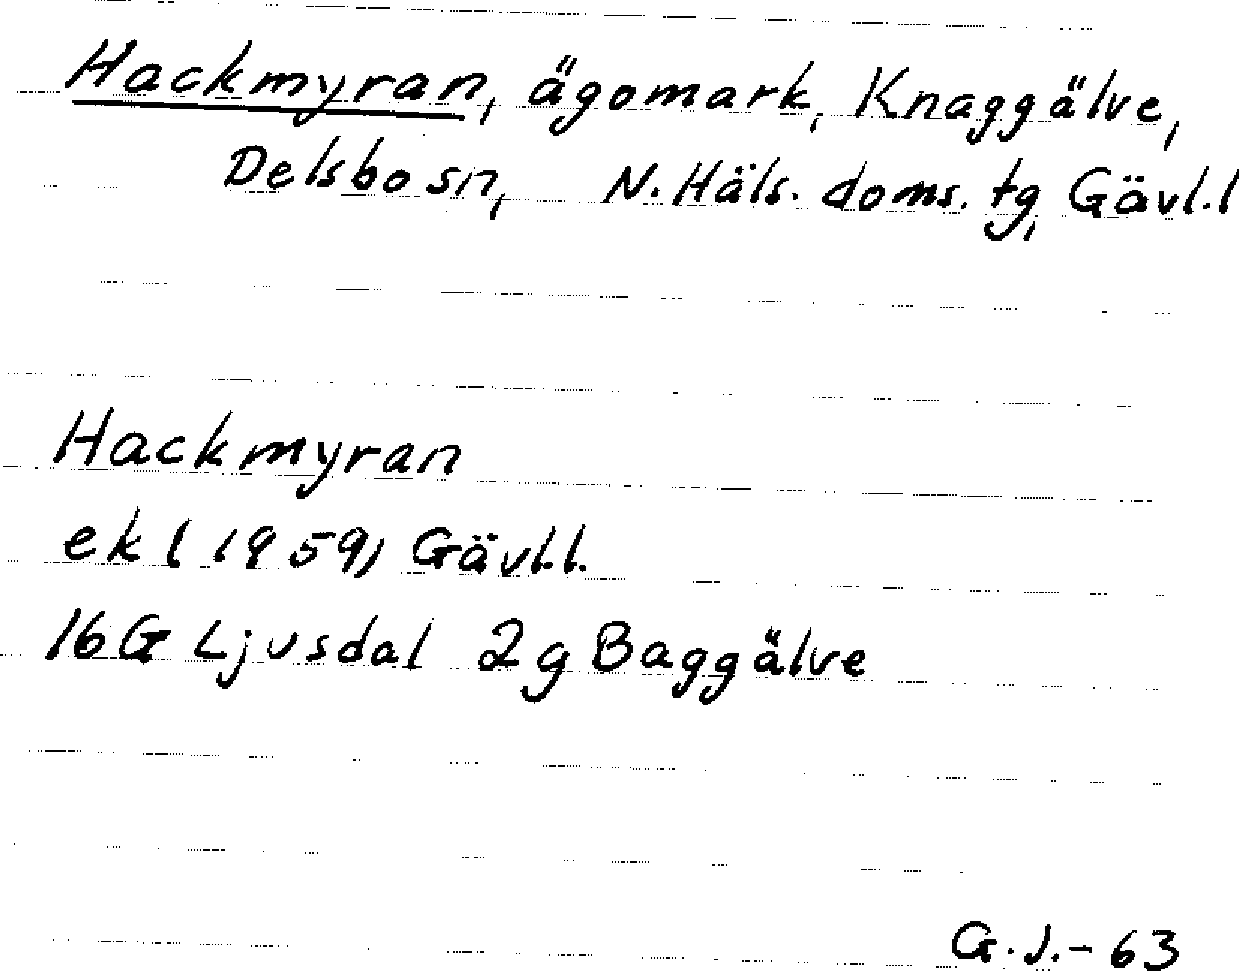 Hackmyran, ägomark, Knaggälve,
Delsbo sn, N. Häls. doms. tg, Gävl.l
Hackmyran
ekl (1959) Gävl.l.
16G Ljusdal 2g Baggälve
G.J.-63